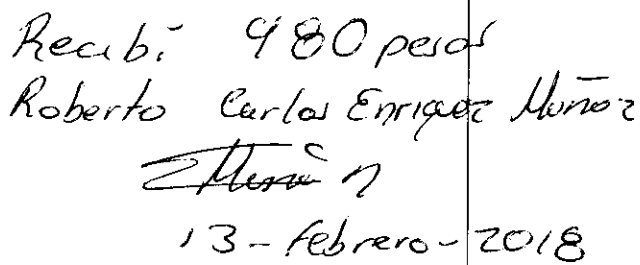 Recibí 980 pesos
Roberto Carlos Enriquez Muñoz
13-febrero-2018